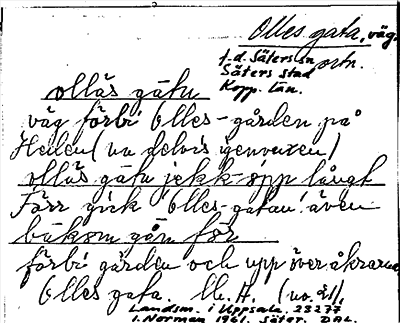 Olles gata, väg.
f.d. Säters sn ortn.
Säters stad
Kopp. län.
olläs gätu
väg förbi Olles-gården på
Heden (nu delvis igenvuxen)
ollas gätu jekk-opp långt
Förr gick Olles-gatan även
bäkom gån för
förbi gården och upp över åkrarna
Olles gata. M.A. (no. 21).
Landsm. i Uppsala. 23278
I. Norman 1961. Säter. DAL.